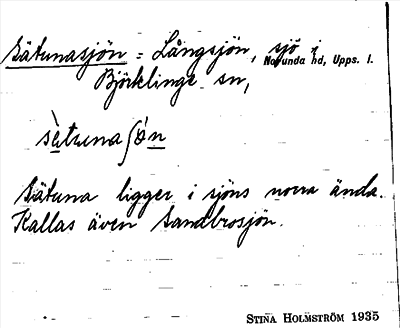 Sätunasjön = Långsjön, sjö i
Björklinge sn, Norunda hd, Upps. l.
sètunaʃö́n
Sätuna ligger i sjöns norra ända.
Kallas även Sandbrosjön.
STINA HOLMSTRÖM 1935